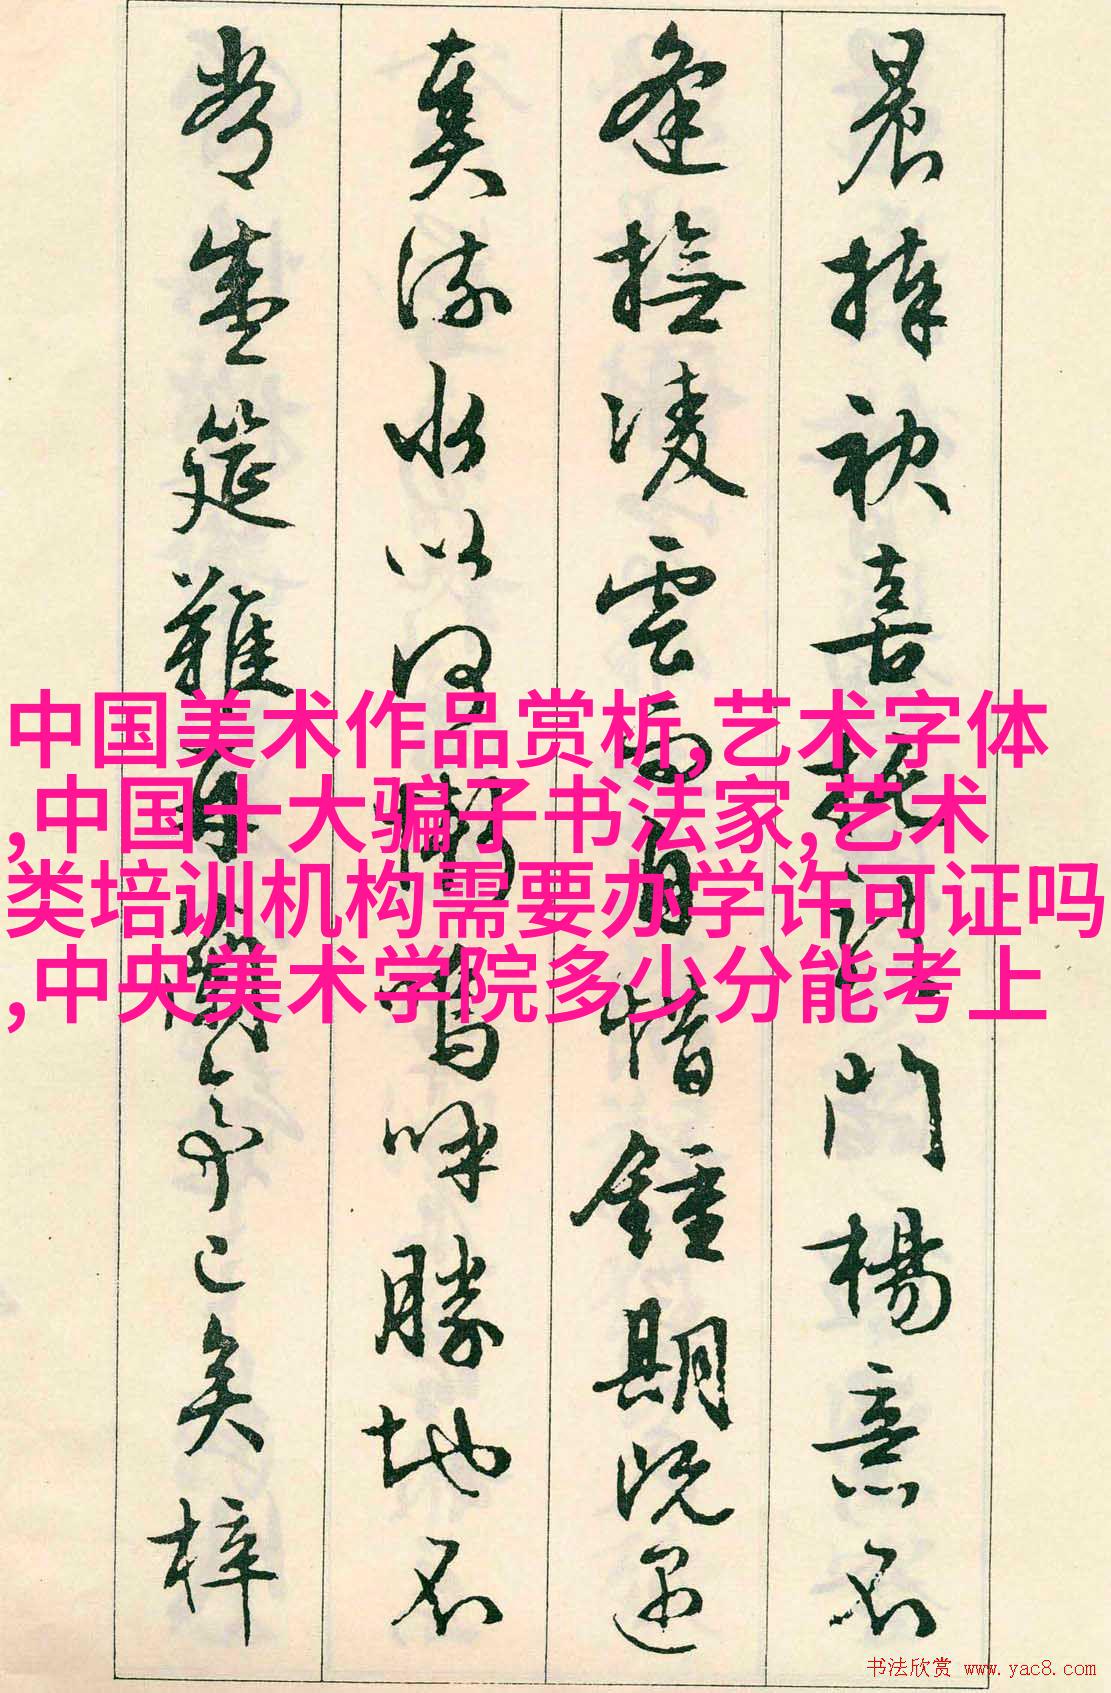 晨捧袂喜託龍門楊意不
逢撫凌雲而自惜鍾期既遇
奏流水以何慚嗚呼勝地不
常盛筵難再蘭亭已矣梓
中国美术作品赏析,艺术字体
,中国十大骗子书法家,艺术
类培训机构需要办学许可证吗
,中央美术学院多少分能考上
书法欣赏 www.yac8.com